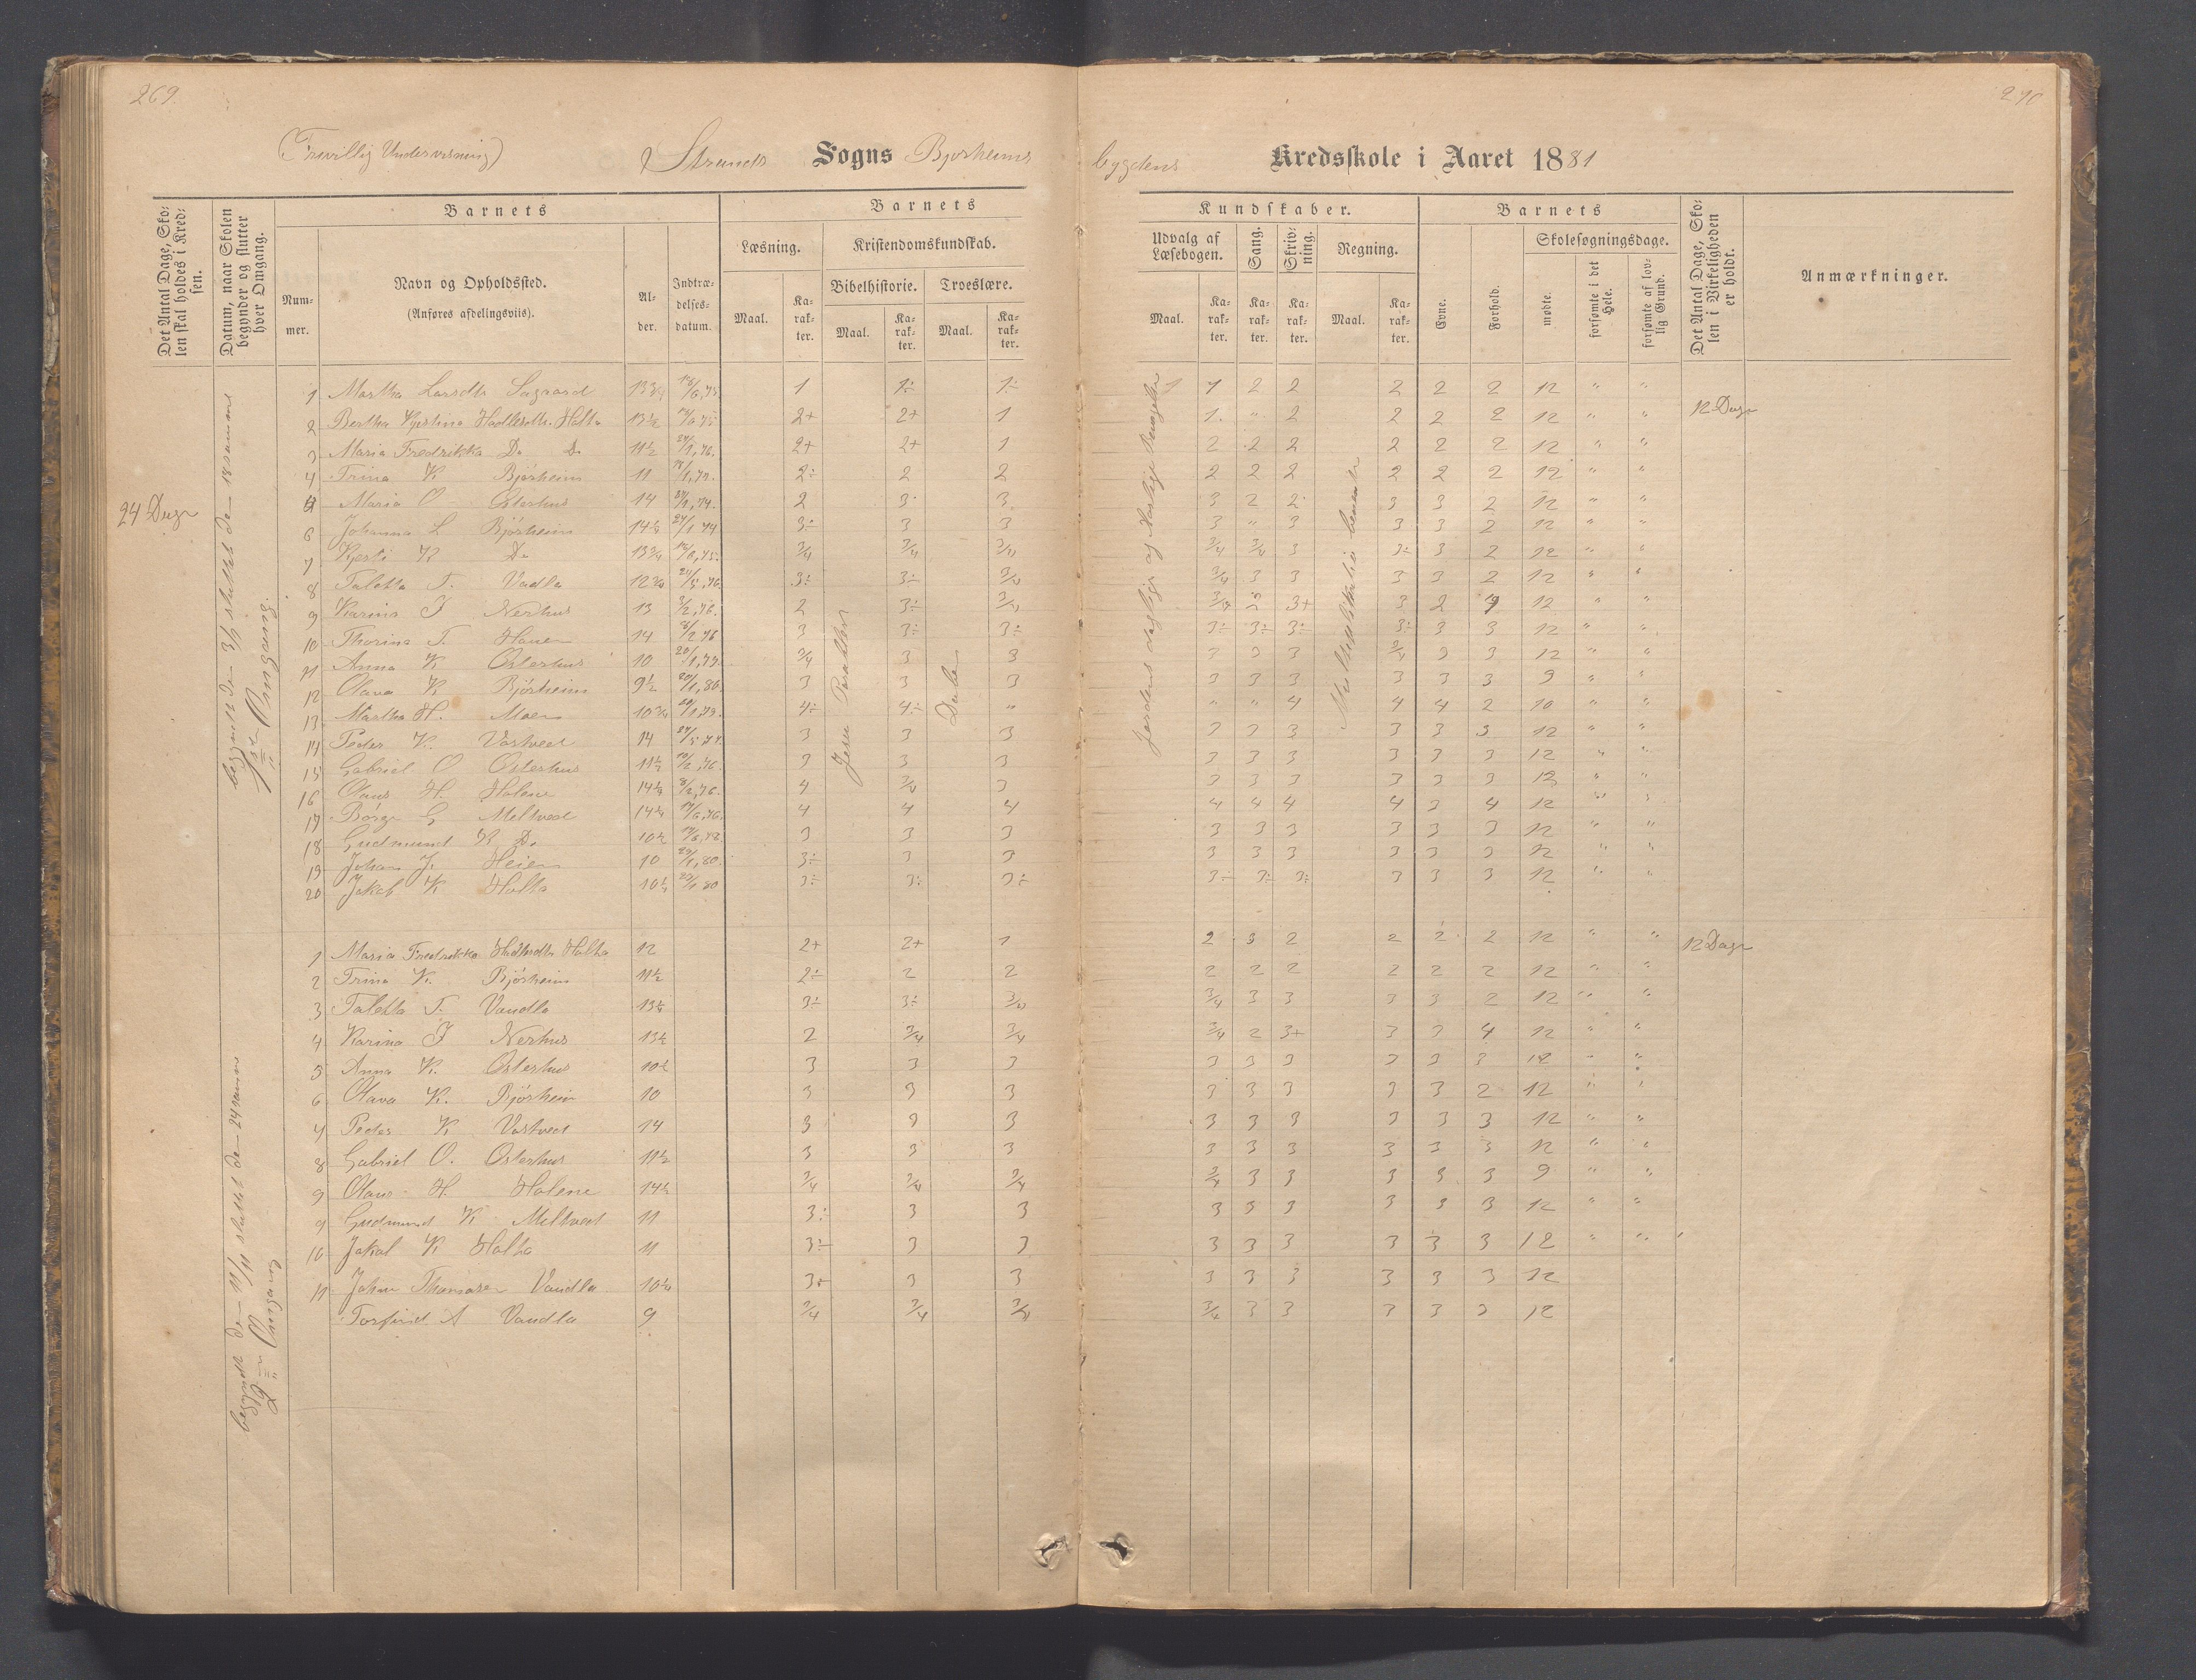 269.
270
(Frivillig Undervisning)
Strands Sogns Bjørheims
bygdens Kredsskole i Aaret 1881
Det Antal Dage, Sko-
len skal holdes i Kred-
sen.
Datum, naar Skolen
begynder og slutter
hver Omgang.
Barnets
Num-
mer.
Navn og Opholdssted.
(Anføres afdelingsviis).
Al-
der.
Indtræ-
delses-
datum.
Barnets
Læsning.
Maal.
Ka-
rak-
ter.
Kristendomskundskab.
Bibelhistorie.
Maal.
Ka-
rak-
ter.
Troeslære.
Maal.
Ka-
rak-
ter.
Kundskaber.
Udvalg af
Læsebogen.
Maal.
Ka-
rak-
ter.
Sang.
Ka-
rak-
ter.
Skriv-
ning.
Ka-
rak-
ter.
Regning.
Maal.
Ka-
rak-
ter.
Barnets
Evne.
Forhold.
Skolesøgningsdage.
mødte.
forsømte i det
Hele.
forsømte af lov-
lig Grund.
Det Antal Dage, Sko-
len i Virkeligheden
er holdt.
Anmærkninger.
24 Dage
begyndte den 3/1 sluttet den 18 samme
1ste Omgang.
Jesu Parabler
Daaben
12 Dage
1 Martha Larsdtr 13 3/4 1 1÷ 1÷ 1 2 2 2 2 2 12 " "
2 Bertha Kjerstina Holta 13½ 2+ 2+ 1 1 " 2 2 2 2 12 " "
3 Maria Fredrikka Do Do 11½ 2+ 2+ 1 2 2 2 2 2 2 12 " "
4 Trina K Bjørheim 11 2÷ 2 2 2 2 2 2 2 2 12 " "
Maria O Østerhus 14 2 3 3 3 2 2 3 3 2 12 " "
6 Johanna L Bjørheim 14¼ 3÷ 3 3 3 " 3 3 3 2 12 " "
7 Kjersti K Do 13 3/4 3/4 3/4 3/4 3/4 3/4 3 3÷ 3 2 12 " "
8 Taletta T. Vadla 12 3/4 3÷ 3÷ 3/4 3/4 3 3 3 3 2 12 " "
9 Karina I Nerhus 13 2 3÷ 3/4 3/4 2 3+ 3 2 12 " "
10 Thorina T. 14 3 3÷ 3÷ 3÷ 3÷ 3÷ 3÷ 3 3 12 " "
11 Anna K Østerhus 10 3/4 3 3 3 3 3 3/4 3 3 12 " "
12 Olava K Bjørheim 9½ 3 3 3 3 3 3 3 3 3 9 " "
13 Martha H. Moen 10 3/4 4÷ 4÷ " " " 4 4 4 2 10 " "
14 Peder K. Vastveit 14 3 3 3 3 3 3 3 3 3 12 " "
15 Gabriel O Østerhus 11½ 3 3 3 3 3 3 3 3 3 12 " "
16 Olaus H. Holene 14¼ 4 3/4 3 3 3 3 3 3 3 12 " "
17 Børge G Meltveit 14¼ 4 4 4 4 4 4 4 3 4 12 " "
18 Gudmund K Do 10½ 3 3 3 3 3 3 3 3 3 12 " "
19 Johan J. Heien 10 3÷ 3 3 3 3 3 3 3 3 12 " "
20 Jakob K Holta 10¼ 3÷ 3÷ 3÷ 3÷ 3÷ 3÷ 3 3 3 12 " "
begyndte den 11/11 sluttet den 24 samme
2den Omgang
12 Dage
1 Maria Fredrikka Holta 12 2+ 2+ 1 2 3 2 2 2 2 12 " "
2 Trina K. Bjørheim 11½ 2÷ 2 2 2 2 2 2 2 2 12 " "
3 Taletta T. Vaudla 13¼ 3÷ 3÷ 3/4 3/4 3 3 3 3 2 12 " "
4 Karina I Nerhus 13½ 2 3/4 3/4 3/4 2 3+ 3 3 4 12 " "
5 Anna K. Østerhus 10½ 3 3 3 3 3 3 3 3 3 12 " "
6 Olava K. Bjørheim 10 3 3 3 3 3 3 3 3 2 12 " "
7 Peder K Vastveit 14 3 3 3 3 3 3 3 3 3 12 " "
8 Gabriel O. Østerhus 11½ 3 3 3 3 3 3 3 3 3 12 " "
9 Olaus H Holene 14½ 3/4 3/4 3/4 3/4 3 3 3 3 3 9 " "
9 Gudmund K Meltveit 11 3÷ 3 3 3 3 3 3 3 3 12 " "
10 Jakob K Holta 11 3÷ 3 3 3 3 3 3 3 3 12 " "
11 Johan Thomasen Vaudla 10¼ 3+ 3 3 3 3 3 3 3 3 12
Torfind A Vaudla 9 3/4 3/4 3/4 3/4 3 3 3 3 3 12